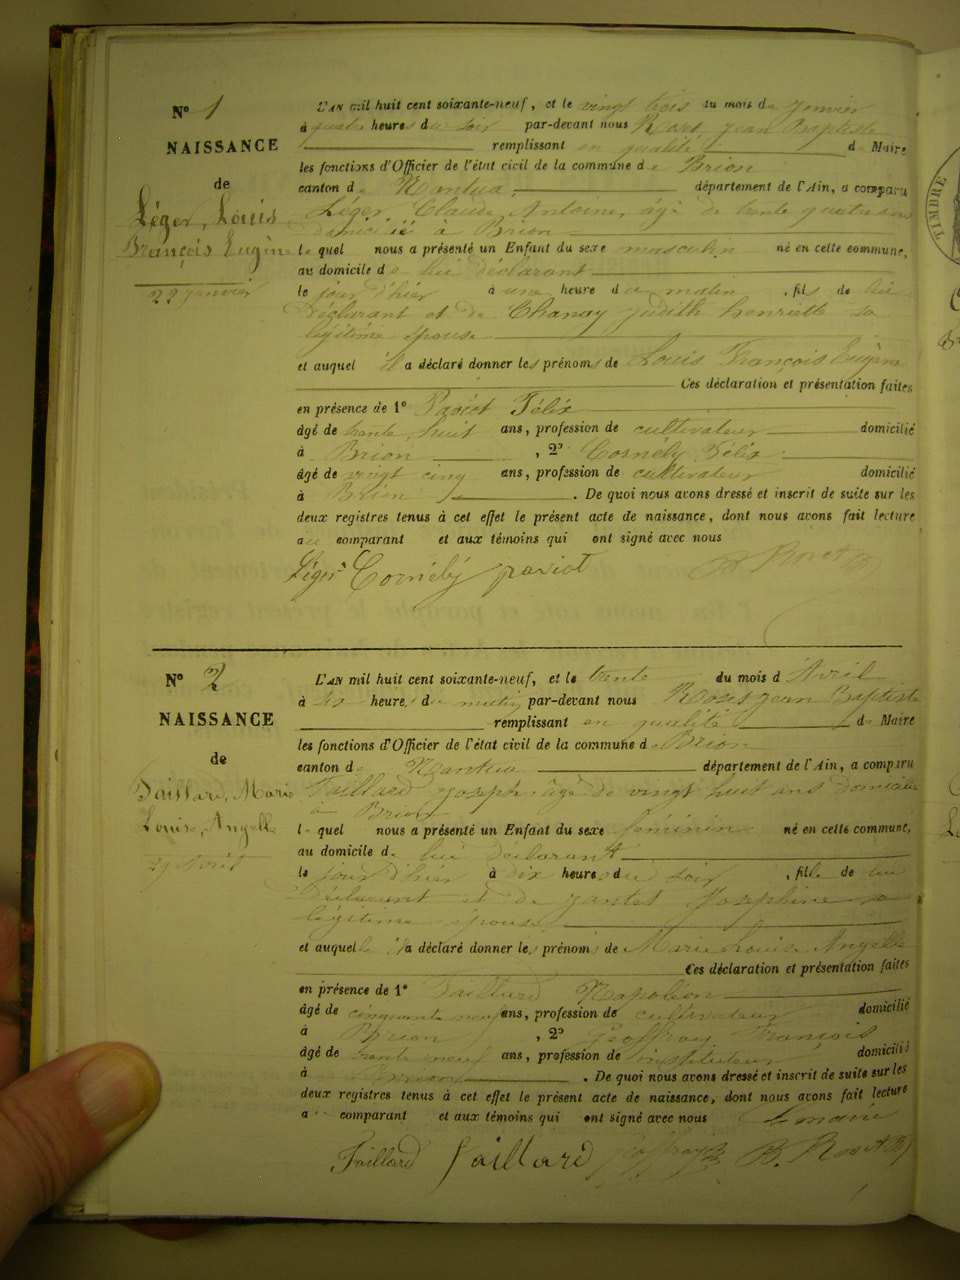 N° 1
NAISSANCE
de
Léger, Louis
François Eugène
22 janvier
L'AN mil huit cent soixante-neuf, et le vingt trois du mois de janvier
à quatre heures du soir par-devant nous Jean Baptiste
remplissant en qualité de Maire
les fonctions d'Officier de l'état civil de la commune de Brion
canton de Nantua département de l'Ain, a comparu
Léger, Claude Antoine, âgé de trente quatre ans
domicilié à Brion
le quel nous a présenté un Enfant du sexe masculin né en cette commune,
au domicile de lui déclarant
le jour d'hier à une heure du matin, fils de lui
Déclarant et de Chanay Judith henriette sa
légitime épouse
et auquel il a déclaré donner les prénoms de Louis François Eugène
Ces déclaration et présentation faites
en présence de 1° Pariot Félix
âgé de trente huit ans, profession de cultivateur domicilié
à Brion, 2° Cornély Félix
âgé de vingt cinq ans, profession de cultivateur domicilié
à Brion. De quoi nous avons dressé et inscrit de suite sur les
deux registres tenus à cet effet le présent acte de naissance, dont nous avons fait lecture
au comparant et aux témoins qui ont signé avec nous
Léger Cornély pariot
N° 2
NAISSANCE
de
Taillard, Marie
Louise, Angelle
29 Avril
L'AN mil huit cent soixante-neuf, et le trente du mois d'Avril
à heures du matin par-devant nous Jean Baptiste
remplissant en qualité de Maire
les fonctions d'Officier de l'état civil de la commune de Brion
canton de Nantua département de l'Ain, a comparu
Taillard Joseph âgé de vingt huit ans domicilié
à Brion
le quel nous a présenté un Enfant du sexe féminin né en cette commune,
au domicile de lui déclarant
le jour d'hier à dix heures du soir, fille de lui
Déclarant et de Jantet Josephine sa
légitime épouse
et auquel il a déclaré donner les prénoms de Marie Louise Angelle
Ces déclaration et présentation faites
en présence de 1° Taillard Napoléon
âgé de cinquante neuf ans, profession de cultivateur domicilié
à Brion, 2° Geoffray François
âgé de trente neuf ans, profession de instituteur domicilié
à Brion. De quoi nous avons dressé et inscrit de suite sur les
deux registres tenus à cet effet le présent acte de naissance, dont nous avons fait lecture
au comparant et aux témoins qui ont signé avec nous
Taillard Taillard Geoffray
TIMBRE